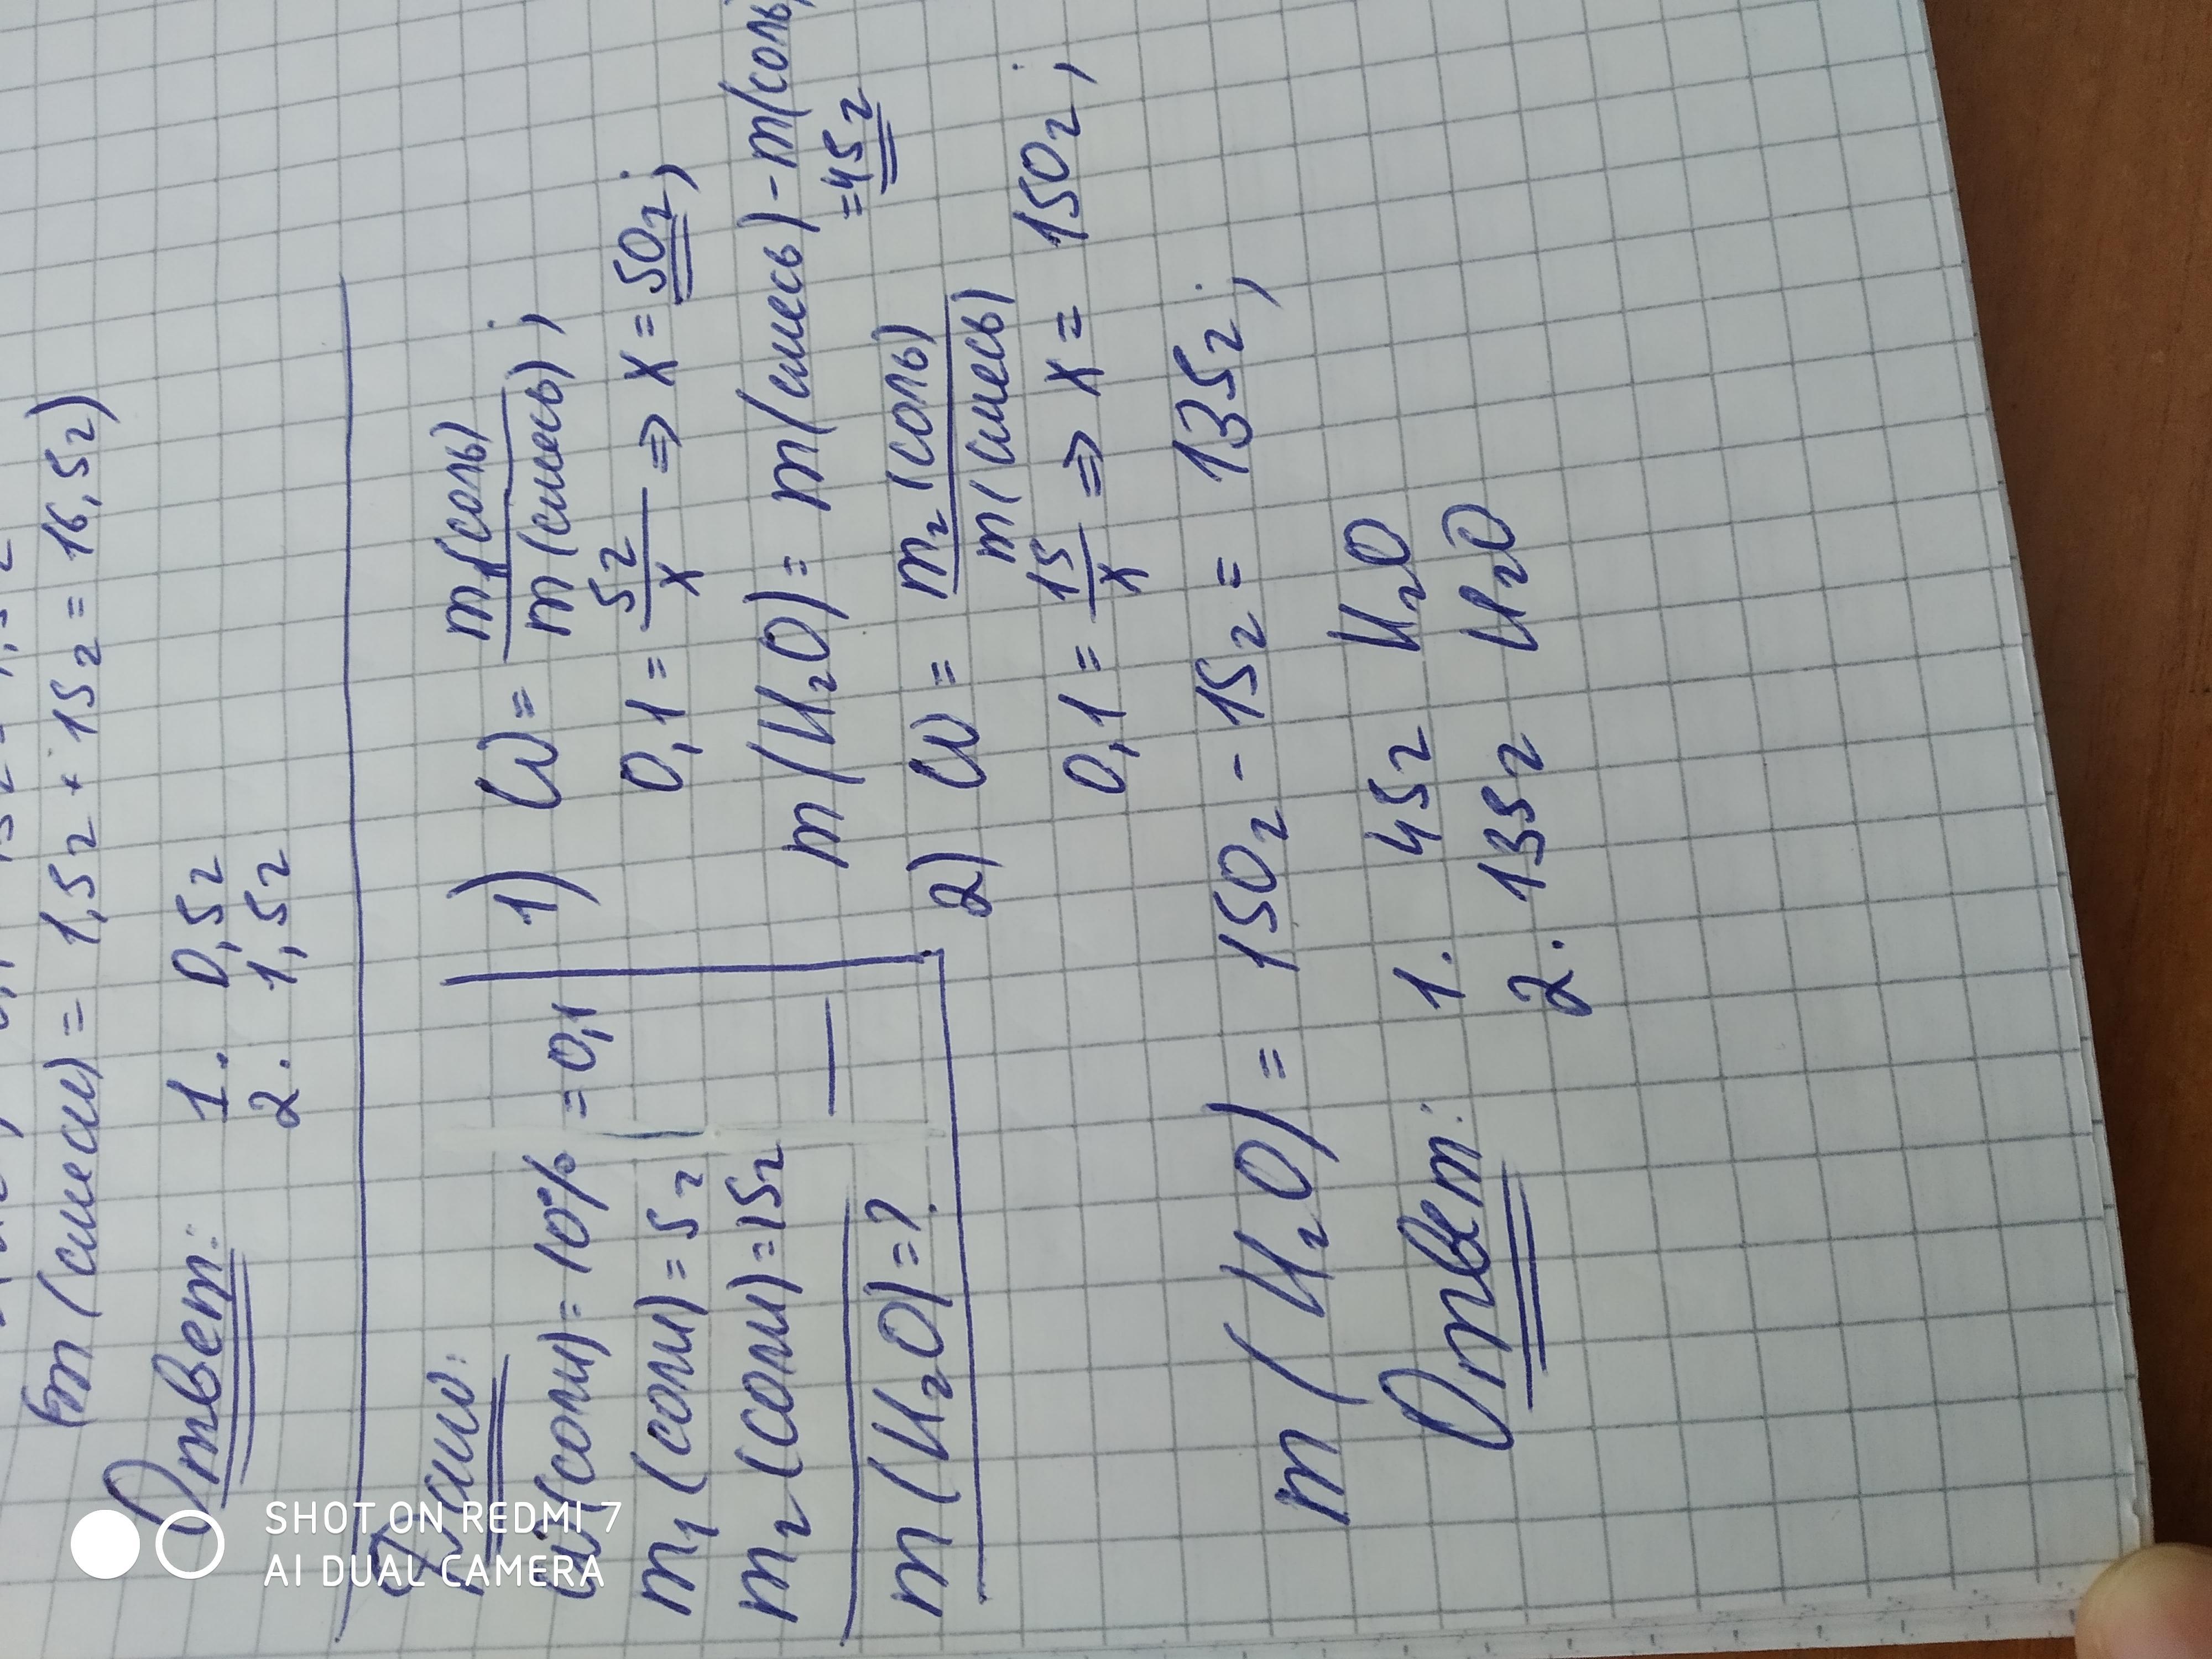 m(смеси) = 1,5г + 15г = 16,5г)
Ответ: 1. 0,5г
2. 1,5г
Дано:
ω(соли) = 10% = 0,1
m₁(соли) = 5г
m₂(соли) = 15г
m(H₂O) = ?
1) ω = m₁(соль) / m(смесь);
0,1 = 5г / x ⇒ x = 50г;
m(H₂O) = m(смесь) - m(соль)
= 45г
2) ω = m₂(соль) / m(смесь)
0,1 = 15 / x ⇒ x = 150г;
m(H₂O) = 150г - 15г = 135г;
Ответ: 1. 45г H₂O
2. 135г H₂O
SHOT ON REDMI 7
AI DUAL CAMERA